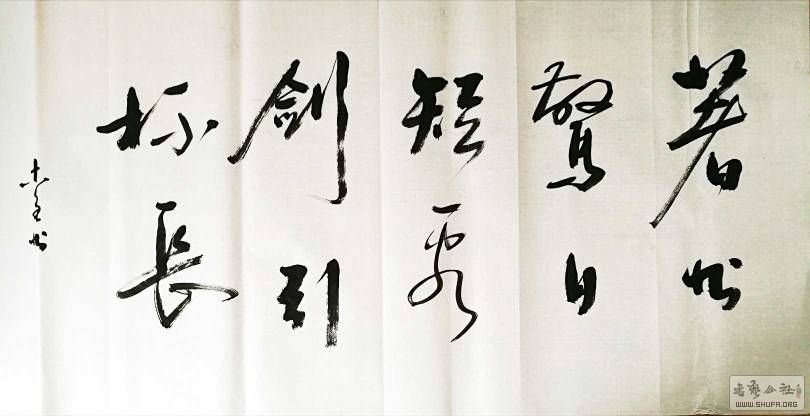 著书
驚日
短看
劍引
杯長
书
書藝公社
WWW.SHUFA.ORG